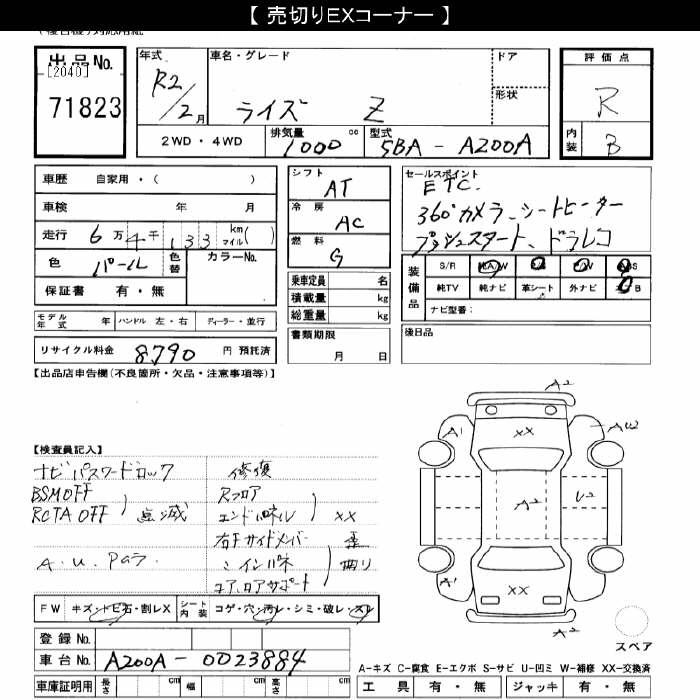 【 売切りEXコーナー 】
出品No.
[2040]
71823
年式
R2/2月
車名・グレード
ライズ Z
ドア
形状
評価点
R
内装
B
2WD・4WD
排気量
1000 cc
型式
5BA - A200A
車歴 自家用・( )
車検 年 月
走行 6万4千133 km マイル( )
色 パール
色替
カラーNo.
保証書 有・無
シフト
AT
冷房
AC
燃料
G
乗車定員 名
積載量 kg
総重量 kg
書類期限
月 日
セールスポイント
ETC.
360°カメラ、シートヒーター
プッシュスタート、ドラレコ
装備品
S/R
純TV 純ナビ 革シート 外ナビ
ナビ型番:
後日品
モデル年式 年 ハンドル 左・右 ディーラー・並行
リサイクル料金 8790 円 預託済
【出品店申告欄(不良箇所・欠品・注意事項等)】
【検査員記入】
ナビパスワードロック
BSM OFF
RCTA OFF 点滅
A.U.Pガラ
修復
Rフロア
エンドパネル XX
右リヤサイドメンバー 歪
曲り
FW キズ・トビ石・割レX
シート内装 コゲ・穴・汚レ・シミ・破レ・スレ
登録No.
車台No. A200A-0023884
車庫証明用 長さ cm 幅 cm 高さ cm
A2
A1
XX
AU2
A2
U2
A1
XX
A2
スペア
A-キズ C-腐食 E-エクボ S-サビ U-凹ミ W-補修 XX-交換済
工具 有・無 ジャッキ 有・無